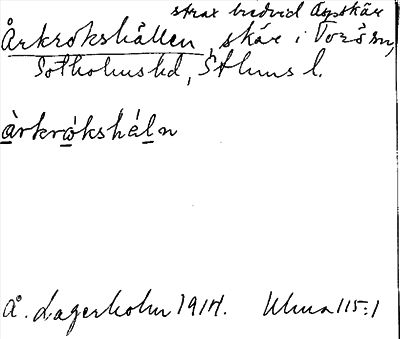 strax bredvid Aspskär
Årkrokshällen, skär i Torö sn,
Sotholms hd, Sthlms l.
àrkrókshéln
Å. Lagerholm 1914. Uma 115:1